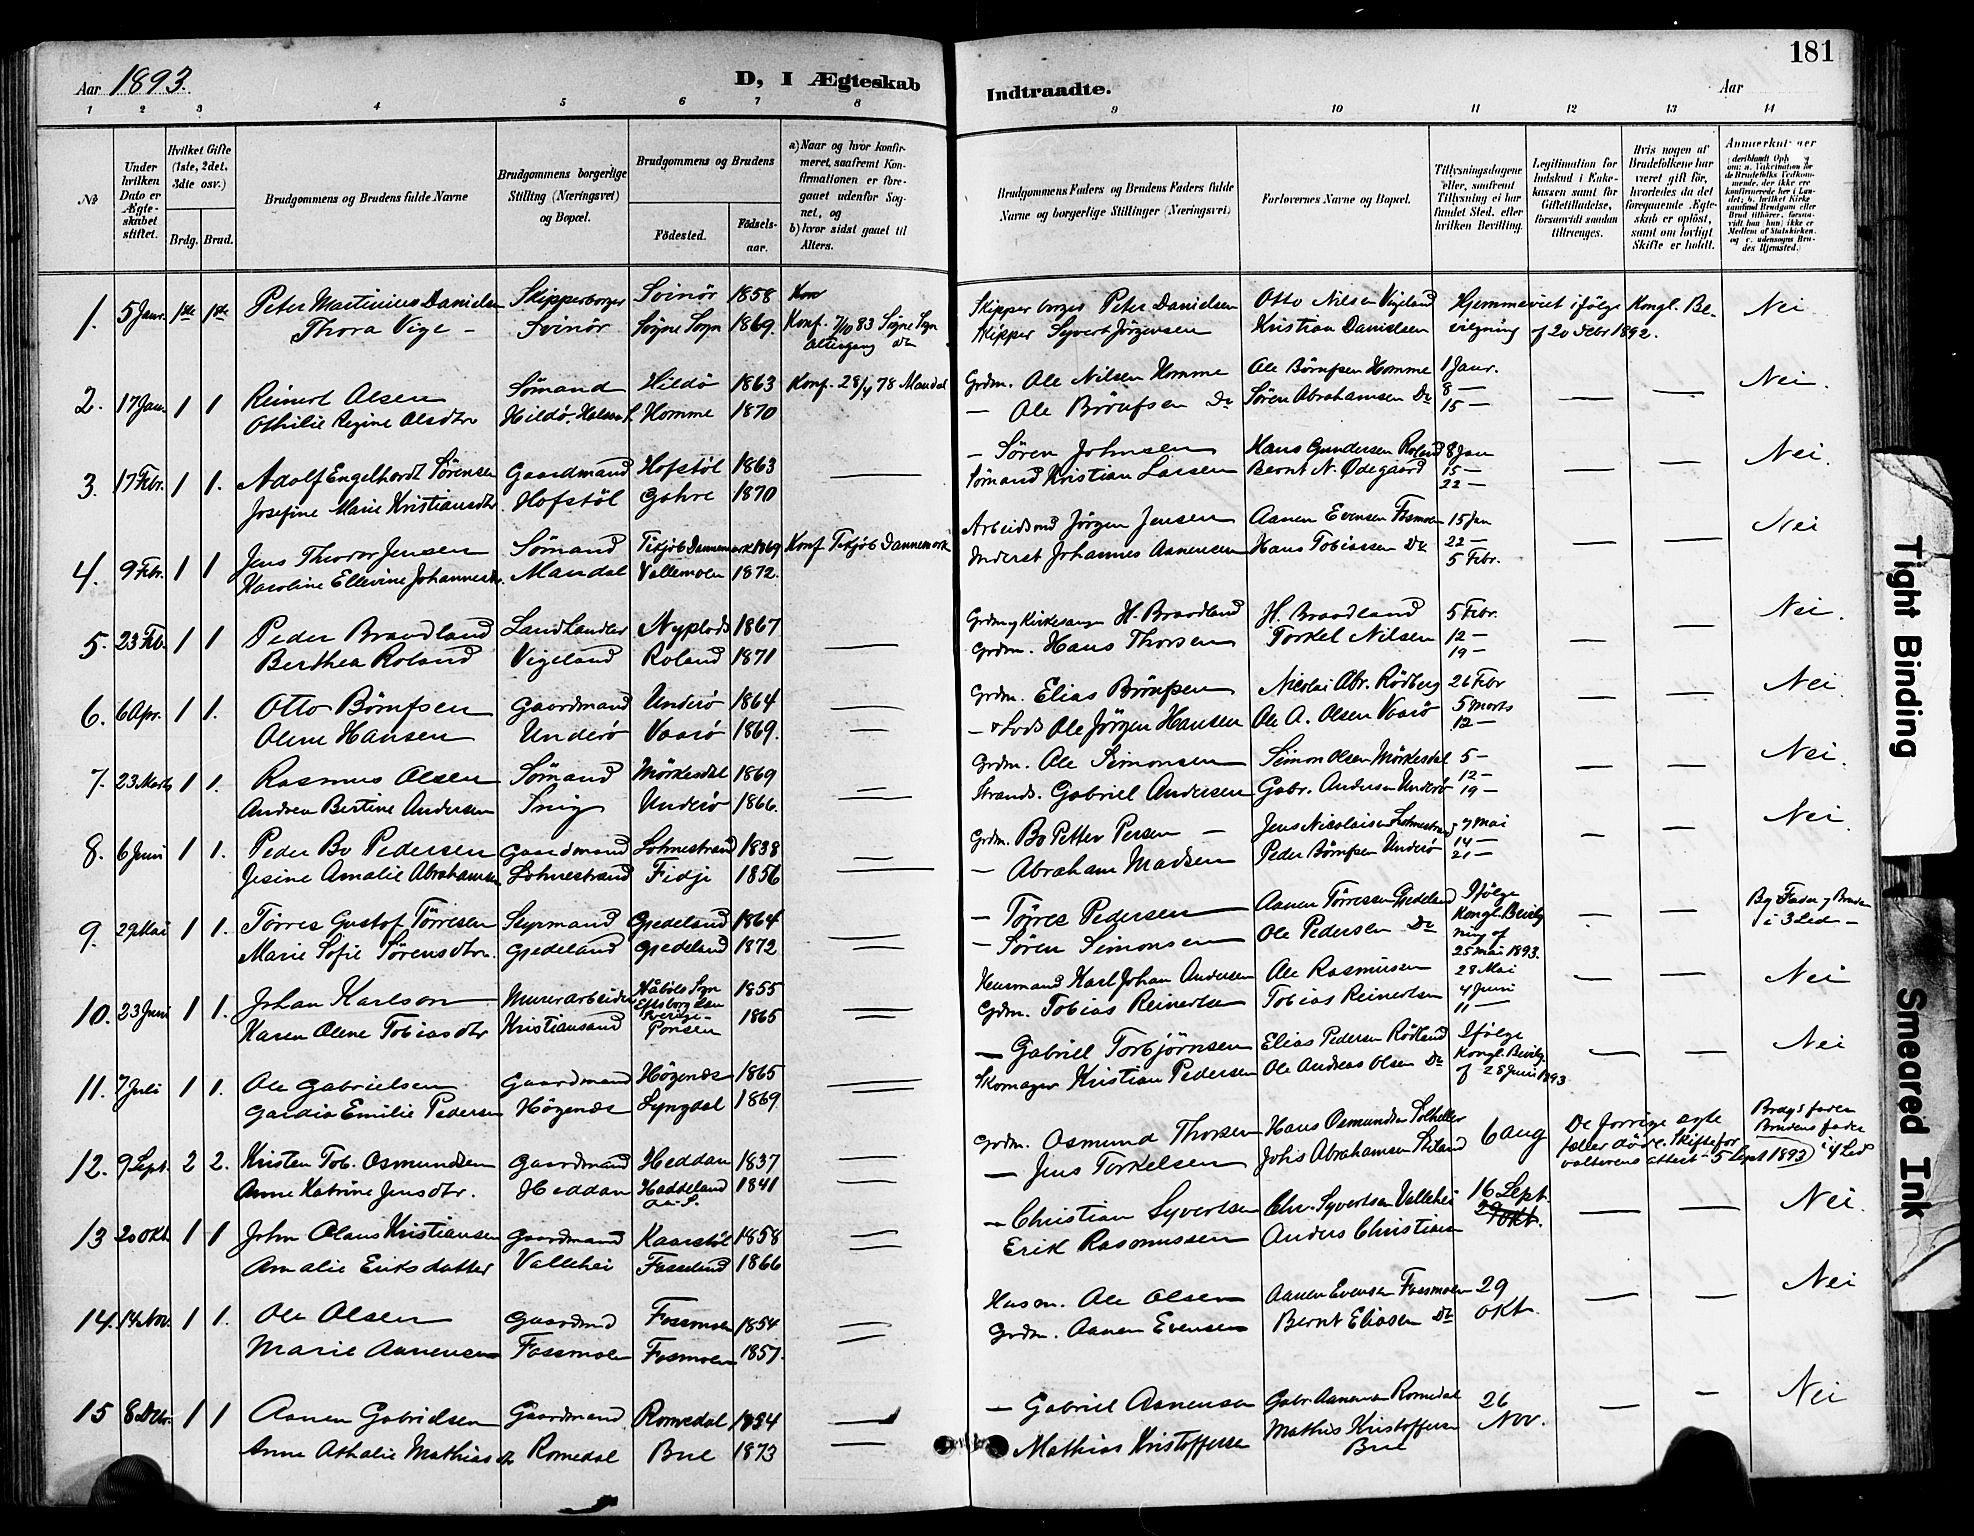 181
Aar 1893.
D, I Ægteskab
Indtraadte.
Aar
1 2 3 4 5 6 7 8
9 10 11 12 13 14
No
Under hvilken Dato er Ægteskabet stiftet.
Hvilket Gifte (1ste, 2det, 3die osv.)
Brdg. Brud.
Brudgommens og Brudens fulde Navne
Brudgommens borgerlige Stilling (Næringsvei) og Bopæl.
Brudgommens og Brudens
Fødested.
Fødsels-aar.
a) Naar og hvor konfirmeret, saafremt Konfirmationen er foregaaet udenfor Sognet, og
b) hvor sidst gaaet til Alters.
Brudgommens Faders og Brudens Faders fulde Navne og borgerlige Stillinger (Næringsvei)
Forlovernes Navne og Bopæl.
Tillysningsdagene eller, saafremt Tillysning ei har fundet Sted, efter hvilken Bevilling.
Legitimation for Indskud i Enkekassen samt for Giftetilladelse, forsaavidt saadan tiltrænges.
Hvis nogen af Brudefolkene har været gift før, hvorledes da det foregaaende Ægteskab er opløst, samt om lovligt Skifte er holdt.
1. 5 Janr. 1ste 1ste Peter Martinius Danielsen Skipperborger Svinør 1858
Thora Vige – Svinør Søgne Sogn 1869. Konf. 7/10 83 Søgne Sogn
Altergang do
Skipperborger Peter Danielsen Otto Nilsen Vigeland Hjemmeviet ifølge Kongl. Be- Nei
Skipper Syvert Jørgensen Kristian Danielsen vilgning af 20 Debr 1892.
2. 17 Jan. 1 1 Reinert Olsen Sømand Hildø 1863 Konf. 28/4 78 Mandal
Othilie Regine Olsdtr Hildø, Halsaa S. Homme 1870
Grdm. Ole Nilsen Homme Ole Børufsen Homme 1 Janr. Nei.
– Ole Børufsen Do Søren Abrahamsen Do 8 –
15 –
3. 17 Febr. 1 1. Adolf Engelhardt Sørensen Gaardmand Hofstøl 1863
Josefine Marie Kristiansdtr Hofstøl Gahre 1870
– Søren Johnsen Hans Gundersen Roland 8 Jan Nei.
Sømand Kristian Larsen Bernt N. Ødegaard 15 –
22 –
4. 9 Febr. 1 1 Jens Thorvor Jensen Sømand Tikjøb Dannemark 1869 Konf Tikjøb Dannemark
Karoline Ellevine Johannesdtr. Mandal Vallemoen 1872.
Arbeidsmd Jørgen Jensen Aanen Evensen Fosmoen 15 Jan Nei
Inderst Johannes Aanensen Hans Tobiassen Do 22 –
5 Febr.
5. 23 Feb. 1 1 Peder Braadland Landhandler Nyplods 1867
Berthea Roland Vigeland Roland 1871
Grdm og Kirkesanger H. Braadland H. Braadland 5 Febr. Nei.
Grdm. Hans Thorsen Torkel Nilsen 12 –
19 –
6. 6 Apr. 1 1. Otto Børufsen Gaardmand Underø 1864
Olene Hansen Underø Vaarø 1869.
Grdm. Elias Børufsen Nicolai Abr. Rødberg 26 Febr Nei
– & Lods Ole Jørgen Hansen Ole A. Olsen Vaarø 5 Marts
12 –
7. 23 Marts 1 1. Rasmus Olsen Sømand Mørkesdal 1869
Andrea Bertine Andersen Snig Underø 1866.
Grdm. Ole Simonsen Simon Olsen Mørkesdal 5 – Nei.
Strands. Gabriel Andersen Gabr. Andersen Underø 12 –
19 –
8. 6 Juni 1 1. Peder Bo Pedersen Gaardmand Lohnestrand 1838
Jesine Amalie Abrahamsen Lohnestrand Fidje 1856
Grdm. Bo Petter Persen – Jens Nicolaisen Lohnestrand 7 Mai Nei.
– Abraham Madsen Peder Børufsen Underø 14 –
21 –
9. 29 Mai 1 1. Tørres Gustof Tørresen Styrmand Gjedeland 1864
Marie Sofie Sørensdtr. Gjedeland Gjedeland 1872
– Tørres Pedersen Aanen Tørressen Gjedeland Ifølge
– Søren Simonsen Ole Pedersen Do Kongl. Bevilg
ning af
25 Mai 1893.
i 3 Led –
10. 23 Juni 1 1. Johan Karlson Murerarbeider Håbøls Sgn 1855
Elfsborg Län
Sverige –
Karen Olene Tobiasdtr Kristiansand Ponsen 1865
Heursmand Karl Johan Andersen Ole Rasmusen 28 Mai Nei
Grdm. Tobias Reinertsen Tobias Reinertsen 4 Juni
11 –
11. 7 Juli 1 1. Ole Gabrielsen Gaardmand Høgenes 1865
Gardia Emilie Pedersen Høgenes Lyngdal 1869
– Gabriel Torbjørnsen Elias Pedersen Rødland Ifølge Nei
Skomager Kristian Pedersen Ole Andreas Olsen Do Kongl. Bevilg.
af 28 Juni 1893
12. 9 Sept. 2 2. Kristen Tob. Osmundsen Gaardmand Heddan 1837
Anne Katrine Jensdtr. Heddan Haddeland 1841
Grdm. Osmund Thorsen Hans Osmundsen Solheller 6 Aug De forrige ægte
– Jens Torkelsen Johs Abrahamsen Stiland fæller døde. Skiftefor
valterens attest 5 Sept 1893
Brdgs fader
Brudens fader
i 4 Led
13 20 Okt. 1 1 John Olaus Kristiansen Gaardmand Kaarstøl 1858
Amalie Eriksdatter Vallehei Fasseland 1866
– Christian Syvertsen Chr. Syvertsen Vallehei 16 Sept. Nei.
Erik Rasmussen Anders Christians 29 Okt.
14. 14 Nov. 1 1. Ole Olsen Gaardmd Fossmoen 1854
Marie Aanensen Fossmoen Fosmoen 1857.
Husm. Ole Olsen Aanen Evensen Fossmoen 29 Nei
Grdm. Aanen Evensen Bernt Eliasen Do Okt.
15 8 Debr. 1 1 Aanen Gabrielsen Gaardmand Romedal 1854
Anne Athalie Mathiasdtr Romedal Bue 1873
– Gabriel Aanensen Gabr Aanensen Romedal 26 Nei
Mathias Kristoffersen Mathis Kristoffersen Nov.
Bue
Tight Binding
Smeared Ink